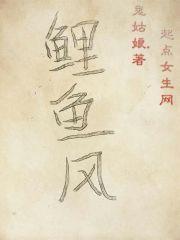 鲤鱼风
鬼姑娘著
起点女生网